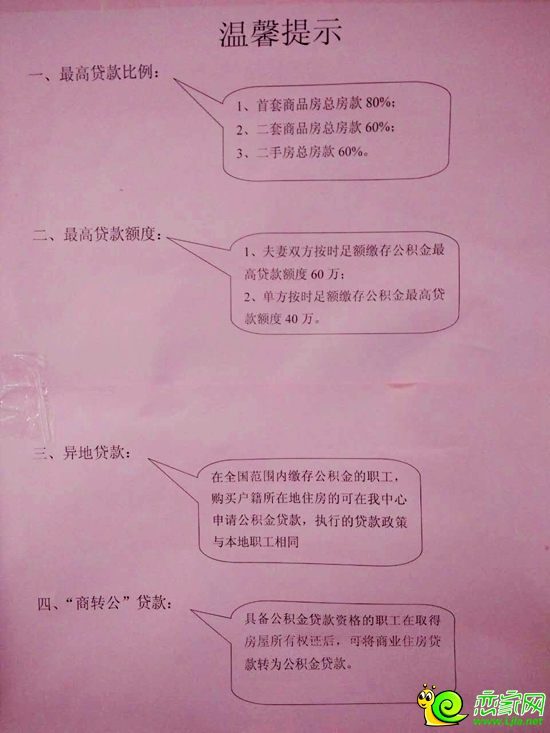 温馨提示
一、最高贷款比例：
1、首套商品房总房款 80%；
2、二套商品房总房款 60%；
3、二手房总房款 60%。
二、最高贷款额度：
1、夫妻双方按时足额缴存公积金最
高贷款额度 60 万；
2、单方按时足额缴存公积金最高贷
款额度 40 万。
三、异地贷款：
在全国范围内缴存公积金的职工，
购买户籍所在地住房的可在我中心
申请公积金贷款，执行的贷款政策
与本地职工相同
四、“商转公”贷款：
具备公积金贷款资格的职工在取得
房屋所有权证后，可将商业住房贷
款转为公积金贷款。
恋家网
www.Ljia.net